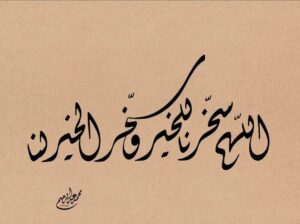 اللهم سخرنا للخير وسخر الخير لنا